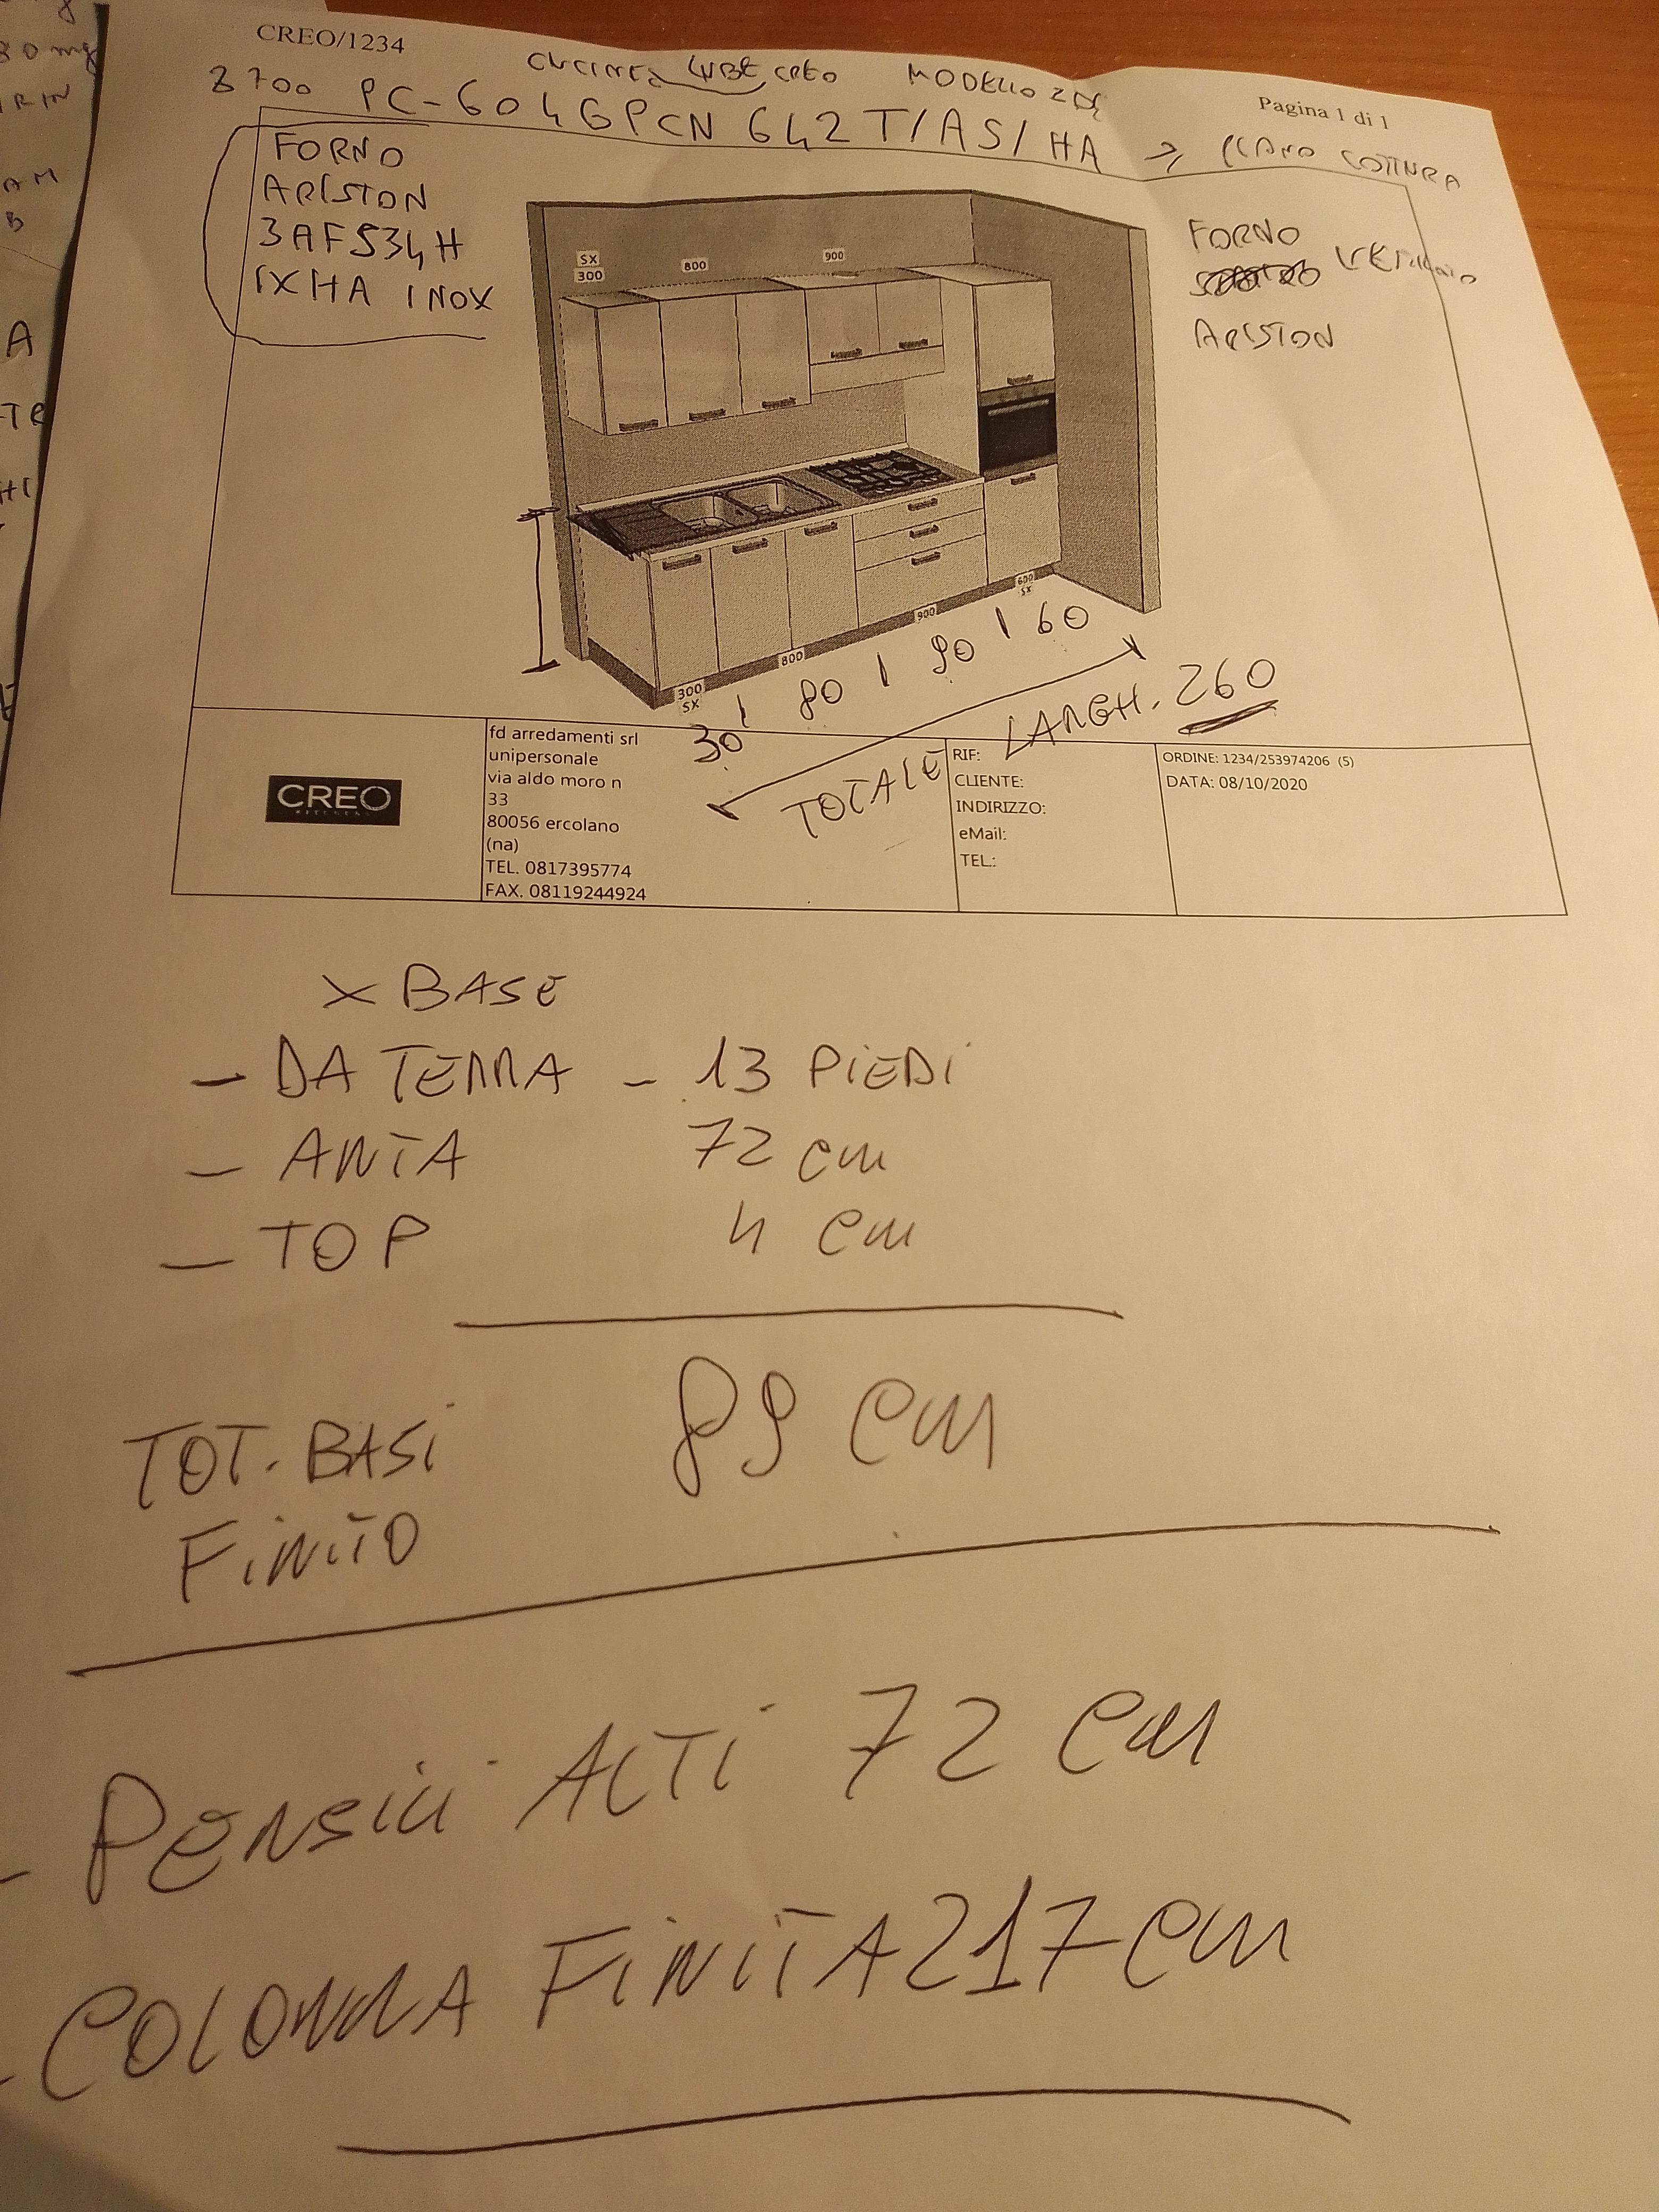 80 mg
CREO/1234
Pagina 1 di 1
CUCINE LUBE CREO MODELLO
3700 PC-604GPCN 642T/AS/HA → PIANO COTTURA
FORNO
ARISTON
3AF534H
IXHA INOX
FORNO
ARISTON
SX
300
800
900
300
SX
800
900
600
SX
30 | 80 | 90 | 60
TOTALE LARGH. 260
CREO
fd arredamenti srl
unipersonale
via aldo moro n
33
80056 ercolano
(na)
TEL. 0817395774
FAX. 08119244924
RIF:
CLIENTE:
INDIRIZZO:
eMail:
TEL.:
ORDINE: 1234/253974206 (5)
DATA: 08/10/2020
X BASE
- DA TERRA - 13 PIEDI
- ANTA 72 cm
- TOP 4 cm
TOT. BASI 89 cm
FINITO
- PENSILI ALTI 72 cm
- COLONNA FINITA 217 cm